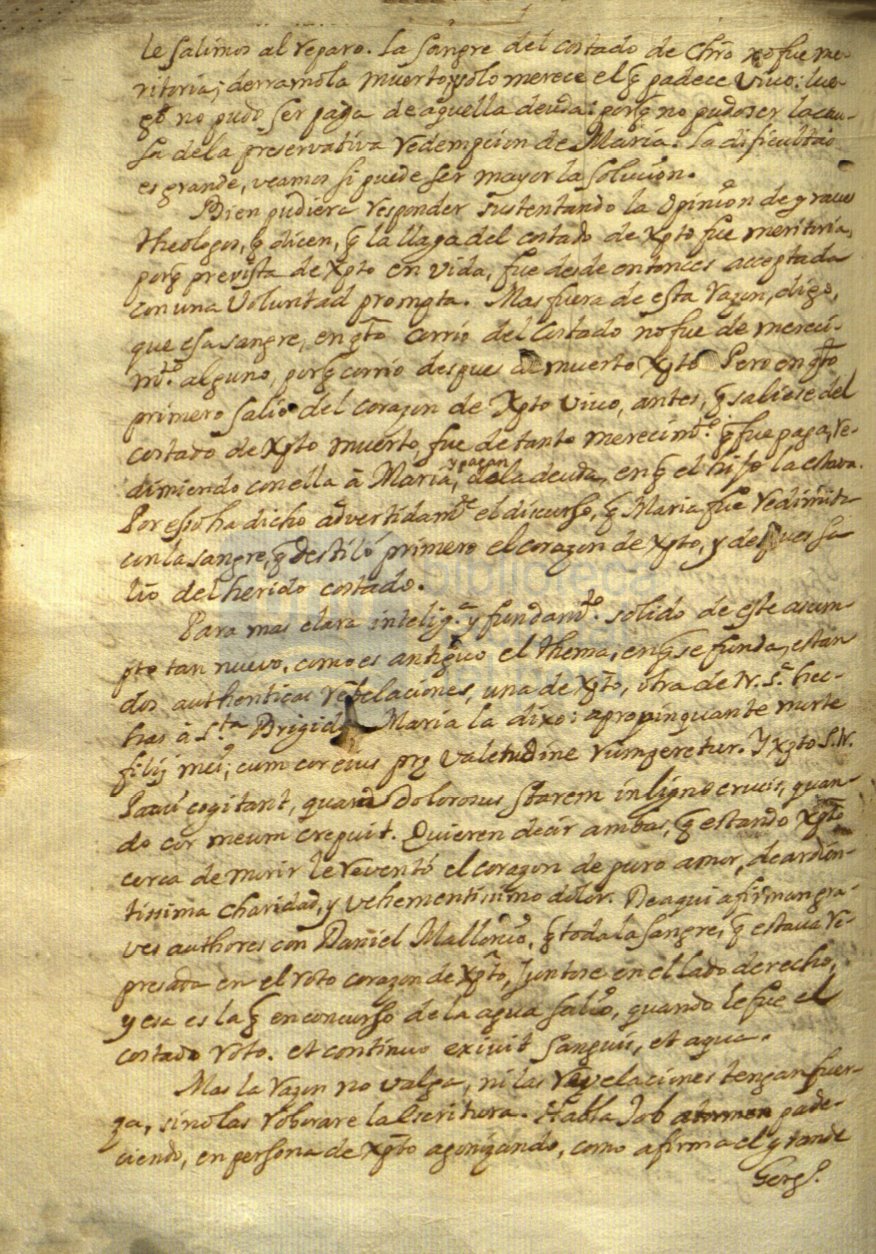 le salimos al reparo. La sangre del costado de Chro no fue me-
ritoria; derramola muerto, y solo merece el q̃ padece vivo: lue-
go no pudo ser paga de aquella deuda: porq̃ no pudo ser la cau-
sa de la preservativa redempcion de Maria. La dificultad
es grande, veamos si puede ser mayor la solucion.
Bien pudiera responder sustentando la opinion de graves
theologos, q̃ dicen, q̃ la llaga del costado de Xpto fue meritoria,
porq̃ prevista de Xpto en vida, fue desde entonces acceptada
con una voluntad prompta. Mas fuera de esta razon, digo,
que esa sangre, en qto corrio del costado no fue de mereci-
mto alguno, porq̃ corrio despues de muerto Xpto Pero en qto
primero salio del corazon de Xpto vivo, antes, q̃ saliese del
costado de Xpto muerto, fue de tanto merecimto q̃ fue paga, re-
dimiendo con ella à Maria, y pagan de la deuda, en q̃ el hijo la estava.
Por eso ha dicho advertidamte el discurso, q̃ Maria fue redimida
con la sangre, q̃ destiló primero el corazon de Xpto, y despues sa-
lio del herido costado.
Para mas clara intelig.a y fundamto solido de este asum-
pto tan nuevo, como es antiguo el thema, en q̃ se funda, estan
dos authenticas revelaciones, una de Xpto, otra de N. S.a hec-
has à Sta Brigida Maria la dixo: apropinquante morte
filij mei, cum cor eius prę valetudine rumperetur. Y Xpto S.N.
Pauci cogitant, quam dolorosus starem in ligno crucis, quan-
do cor meum crepuit. Quieren decir ambas, q̃ estando Xpto
cerca de morir le reventó el corazon de puro amor, de ardien-
tissima charidad, y vehementissimo dolor. De aqui afirman gra-
ves authores con Daniel Mallonio, q̃ toda la sangre, q̃ estava re-
presada en el roto corazon de Xpto, juntose en el lado derecho,
y esa es la q̃ en concurso de la agua salio, quando le fue el
costado roto. et continuo exivit sanguis, et aqua.
Mas la razon no valga, ni las revelaciones tengan fuer-
za, sino las roborare la Escritura. Habla Job pade-
ciendo, en persona de Xpto agonizando, como afirma el grande
Gerg.o